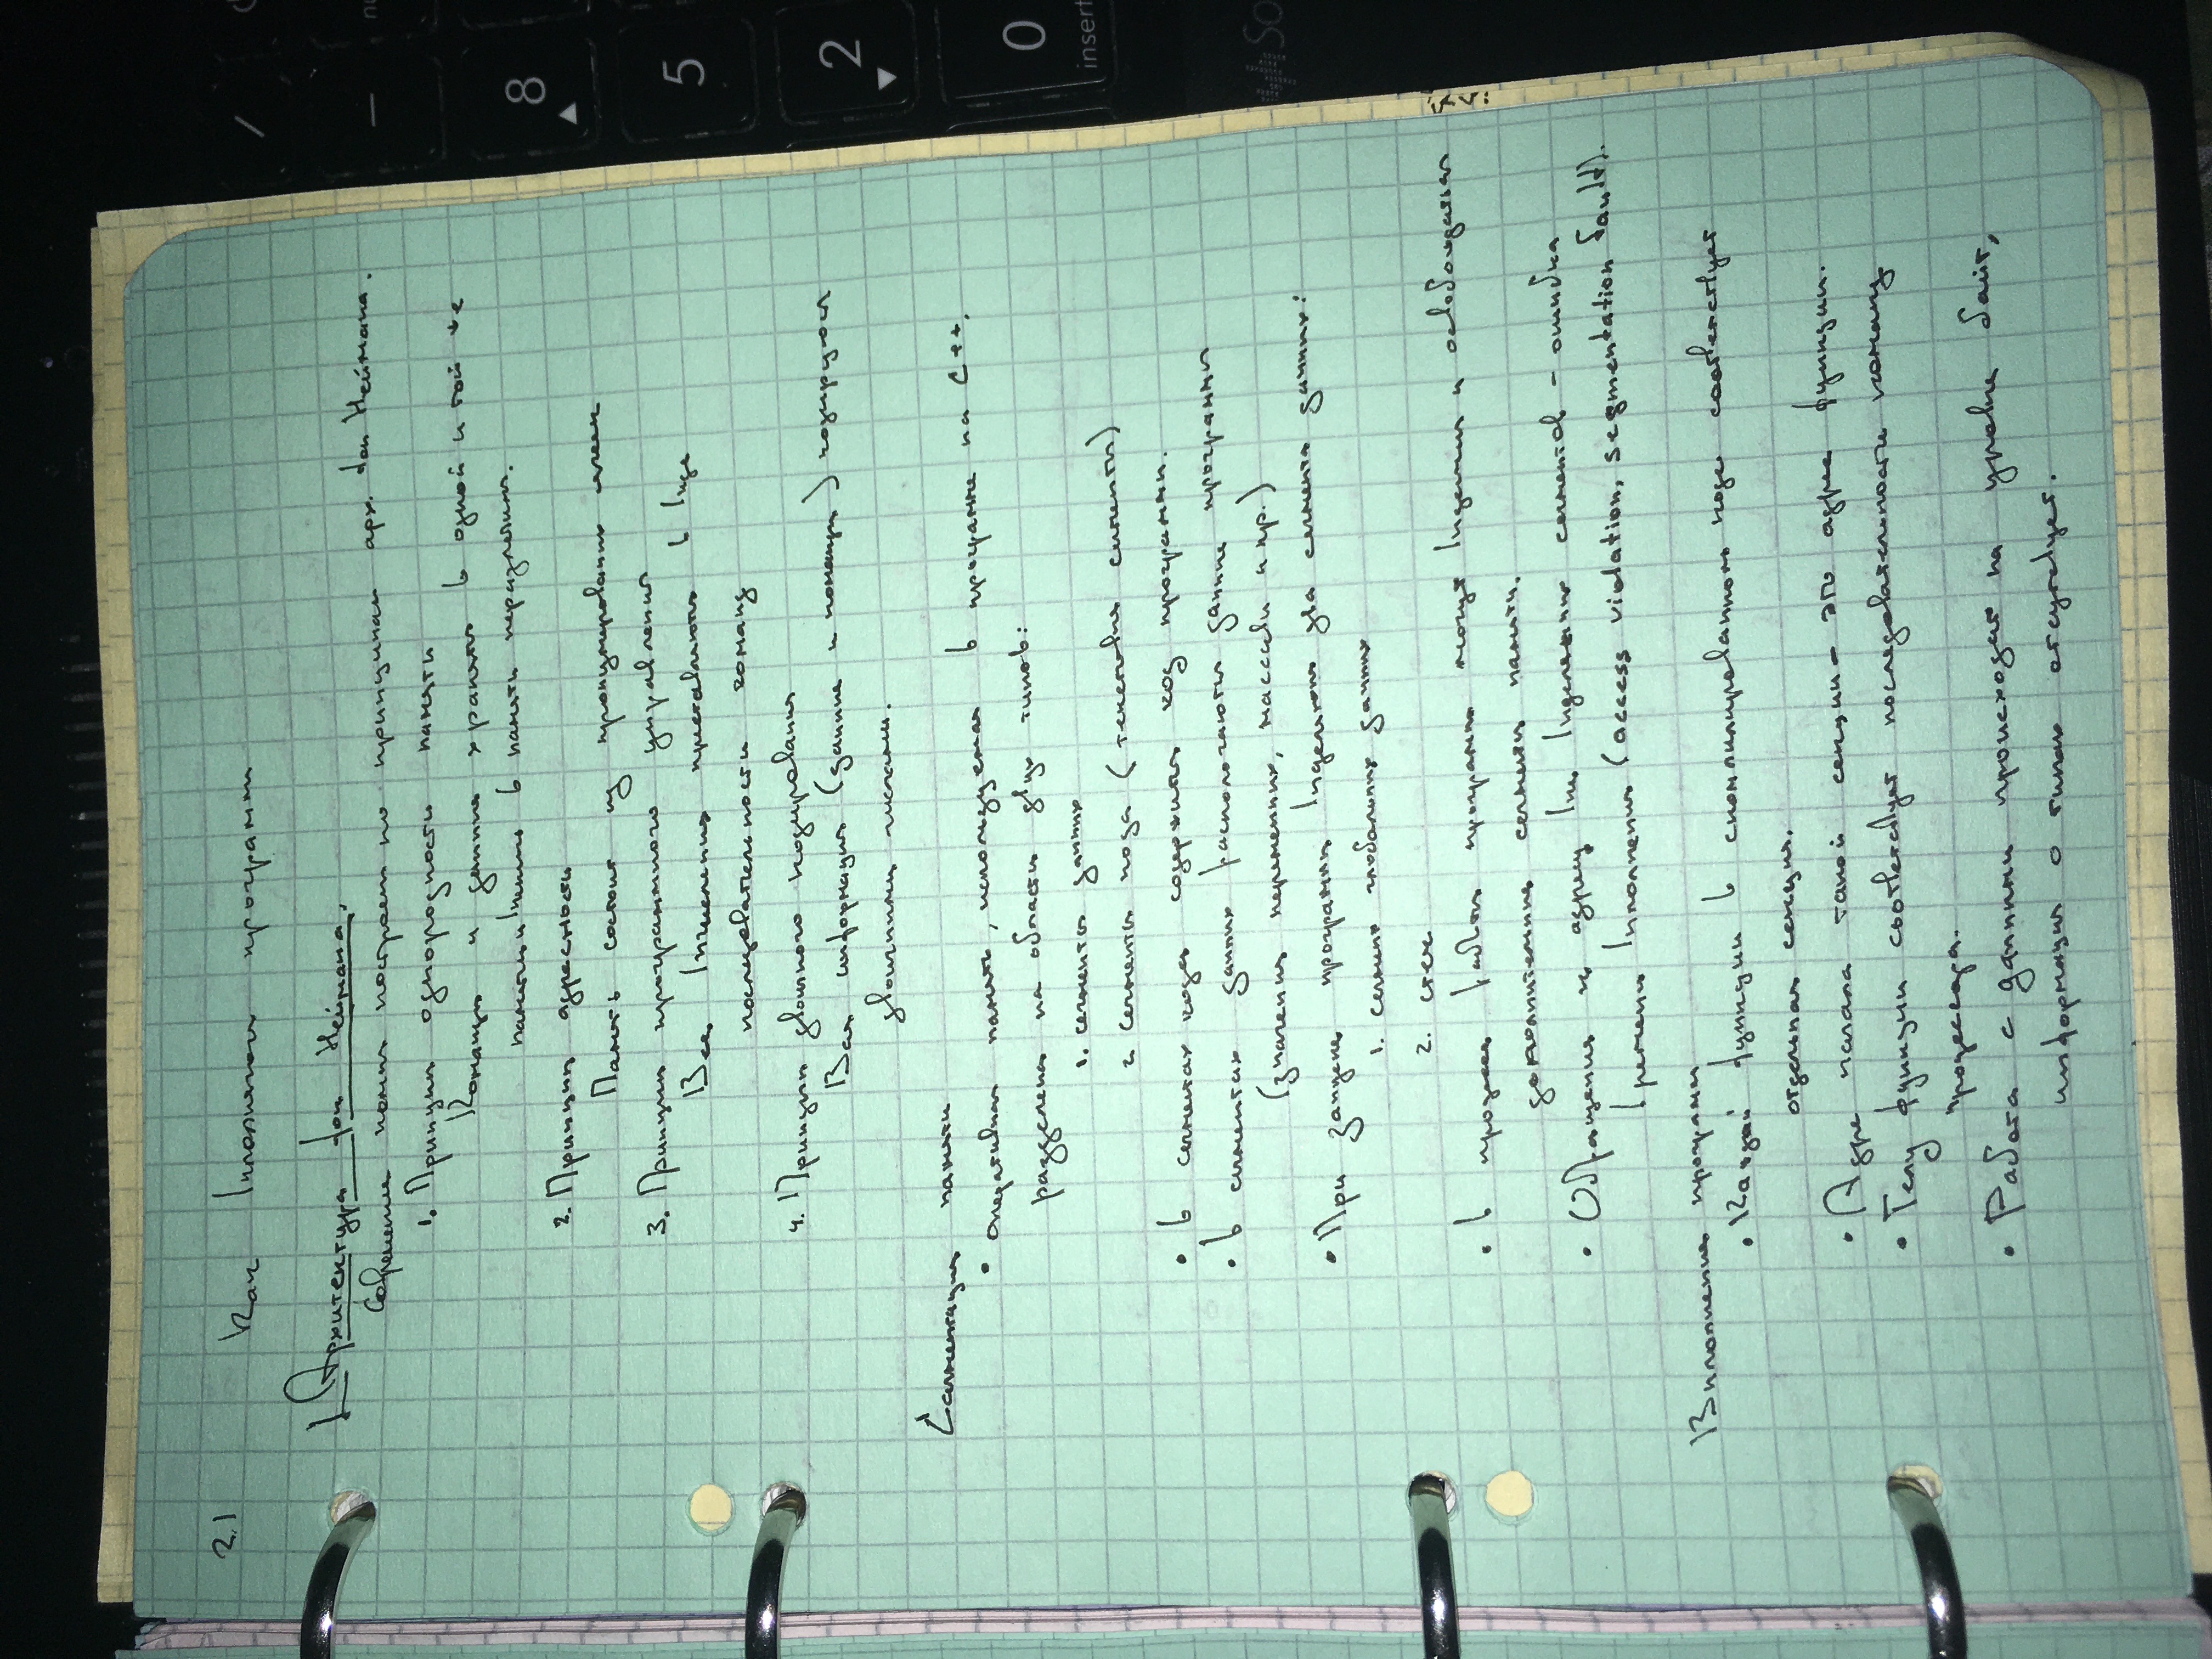 2.1
Как выполняются программы
Архитектура фон Неймана.
Современные компы построены по принципам арх. фон Неймана.
1. Принцип однородности памяти
Команды и данные хранятся в одной и той же
памяти и внешне в памяти неразличимы.
2. Принцип адресности
Память состоит из пронумерованных ячеек
3. Принцип программного управления
Все вычисления представляются в виде
последовательности команд
4. Принцип двоичного кодирования
Вся информация (данные и команды) кодируются
двоичными числами.
Сегментация памяти
• Оперативная память, используемая в программе на C++,
разделена на области двух типов:
1. сегменты данных
2. сегменты кода (текстовые сегменты)
• В сегментах кода содержится код программы.
• В сегментах данных располагаются данные программы
(значения переменных, массивы и пр.)
• При запуске программы выделяются два сегмента данных:
1. сегмент глобальных данных
2. стек
• В процессе работы программы могут выделяться и освобождаться
дополнительные сегменты памяти.
• Обращения к адресу вне выделенных сегментов - ошибка
времени выполнения (access violation, segmentation fault).
Выполнение программы
• Каждой функции в скомпилированном коде соответствует
отдельная секция.
• Адрес начала такой секции - это адрес функции.
• Телу функции соответствует последовательности команд
процессора.
• Работа с данными происходит на уровне байт,
информация о типах отсутствует.
/
8
5
2
0
insert